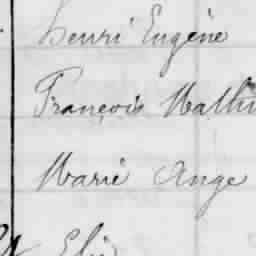 henri Eugène
François Mathu
Marie Ange
Elie